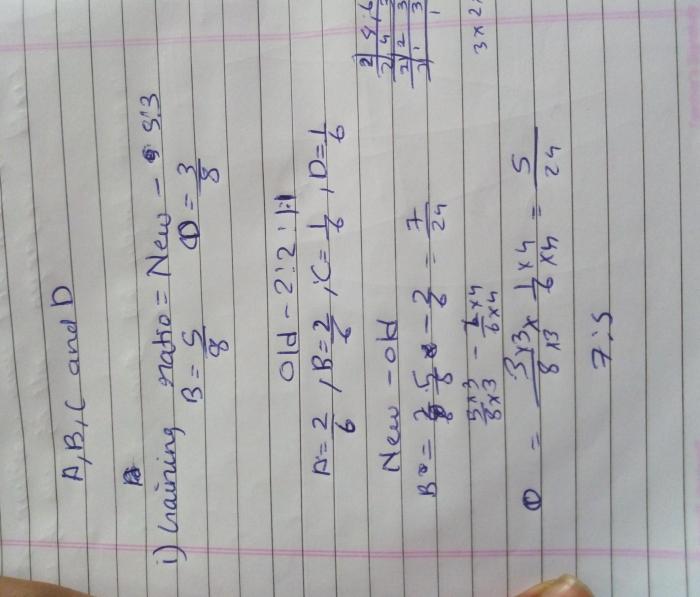 A, B, C and D
i) Gaining ratio = New - 5:3
B = 5/8 D = 3/8
Old - 2:2:1:1
A = 2/6, B = 2/6, C = 1/6, D = 1/6
New - Old
B = 5/8 - 2/6 = 7/24
5×3/8×3 - 2×4/6×4
D = 3×3/8×3 - 1×4/6×4 = 5/24
7:5
3×2